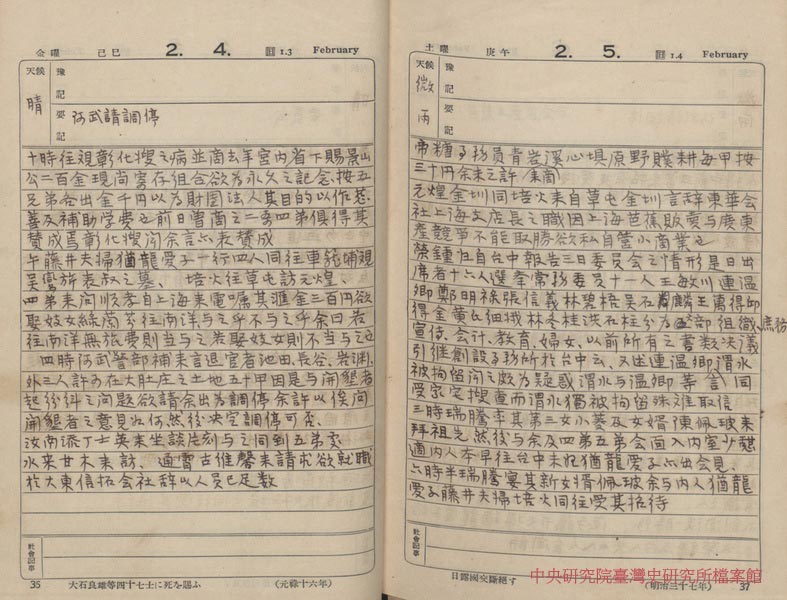 金曜 己巳 2. 4. 舊1.3 February
天候 豫記
晴
要記 阿武請調停
十時往視彰化嫂之病並商去年宮内省下賜景山
公二百金現尚寄存組合欲為永久之記念、按五
兄弟各出金千円以為財団法人其目的以作慈
善及補助学費之前日曾商之二為四弟俱得其
賛成焉彰化嫂聞余言亦表賛成
午藤井夫婦猶龍愛子一行四人同往車籠埔視
吳鸞旂表叔之墓、 培火往草屯訪元煌、
四弟来問順孝自上海来電囑其滙金三百円欲
娶妓女絲蘭芬往南洋与之乎不与之乎余曰若
往南洋無旅費則当与之若娶妓女則不当与之也
四時阿武警部補来言退官者池田、長谷、岩渕、
外三人許可在大肚庄之土地五十甲因是与開墾者
起紛糾之問題欲請余出為調停余許以俟问
開墾者之意見如何然後决定調停可否、
汝南添丁士英来坐談片刻与之同到五弟處、
水来甘木来訪、 通霄古維馨来請求欲就職
於大東信拓会社辞以人員已足数
社會記事
35 大石良雄等四十七士に死を賜ふ (元祿十六年)
土曜 庚午 2. 5. 舊1.4 February
天候 豫記
微雨
要記
帝糖事務員青岩溪心埧原野贌耕每甲按
三十円余未之許
元煌金圳同培火来自草屯金圳言辞東華会
社上海支店長之職因上海芭蕉販賣与廣東
産競爭不能取勝欲私自營小商業也
榮鍾归自台中報告三日委员会之情形是日出
席者十六人選举常務委员十一人王敏川連温
卿鄭明祿張信義林碧梧吳石麟王萬得邱
得金黄氏細娥林冬桂洪石柱分為部組織、庶務
宣传、会计、教育、婦女、以前所有之書数决議
引继創設事務所於台中云、又述連温卿渭水
被拘留聞之頗為疑惑渭水与温卿等言同
受家宅搜查而渭水獨被拘留殊难取信
三時瑞騰李其第三女小蓁及女婿陳佩玻来
拜祖先然後与余及四弟五弟会面入内室少憩
適内人本早往台中未归猶龍愛子亦出会見、
六時半瑞騰宴其新女婿佩玻余与内人猶龍
愛子藤井夫婦培火同往受其招待
社會記事
日露國交斷絕す (明治三十七年) 37
中央研究院臺灣史研究所檔案館